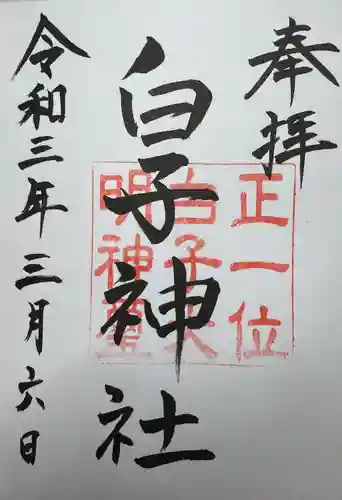 奉拝
白子神社
令和三年三月六日
正一位
白子大
明神璽